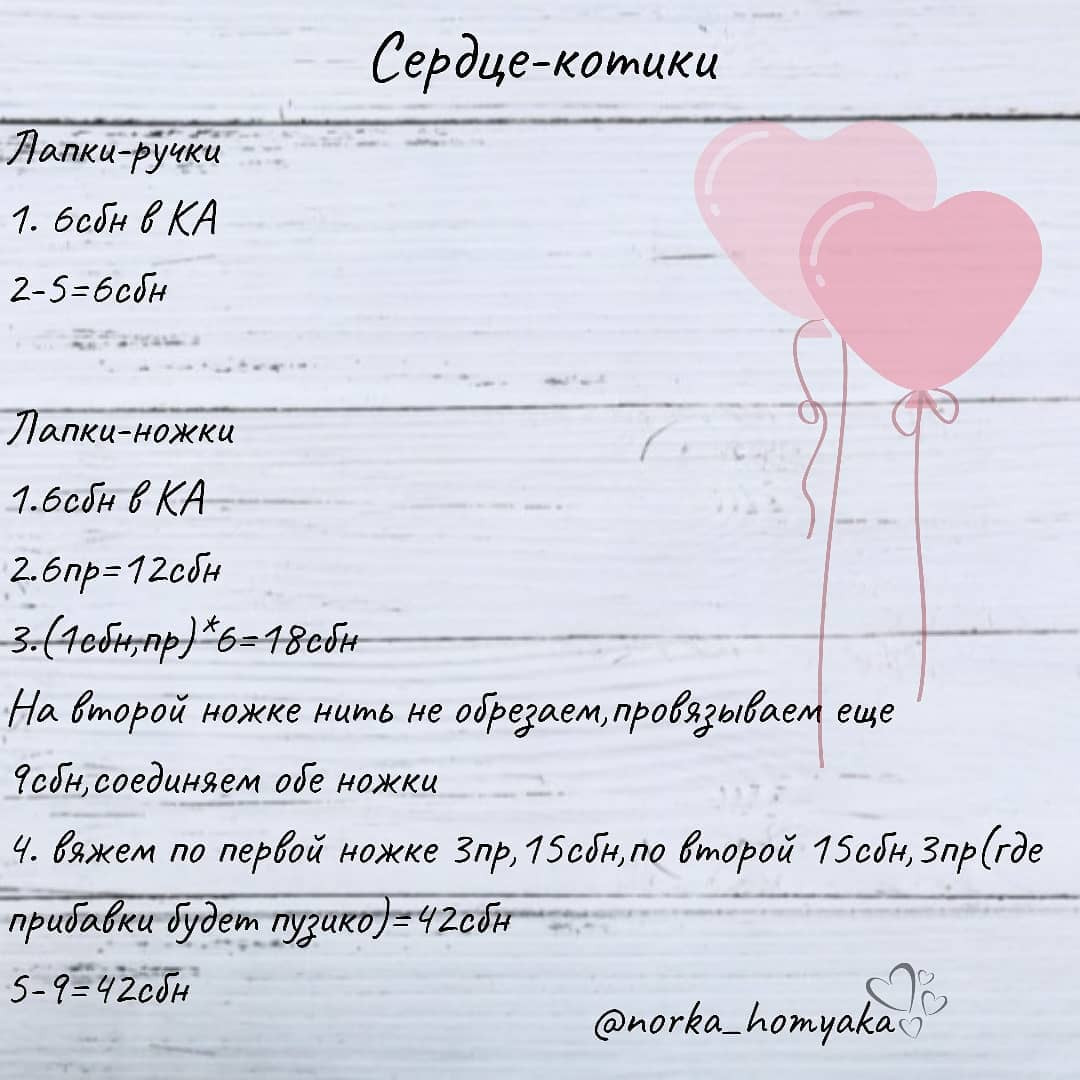 Сердце-котики
Лапки-ручки
1. 6сбн в КА
2-5=6сбн
Лапки-ножки
1.6сбн в КА
2.6пр=12сбн
3.(1сбн,пр)*6=18сбн
На второй ножке нить не обрезаем,провязываем еще
9сбн,соединяем обе ножки
4. вяжем по первой ножке 3пр,15сбн,по второй 15сбн,3пр(где
прибавки будет пузико)=42сбн
5-9=42сбн
@norka_homyaka